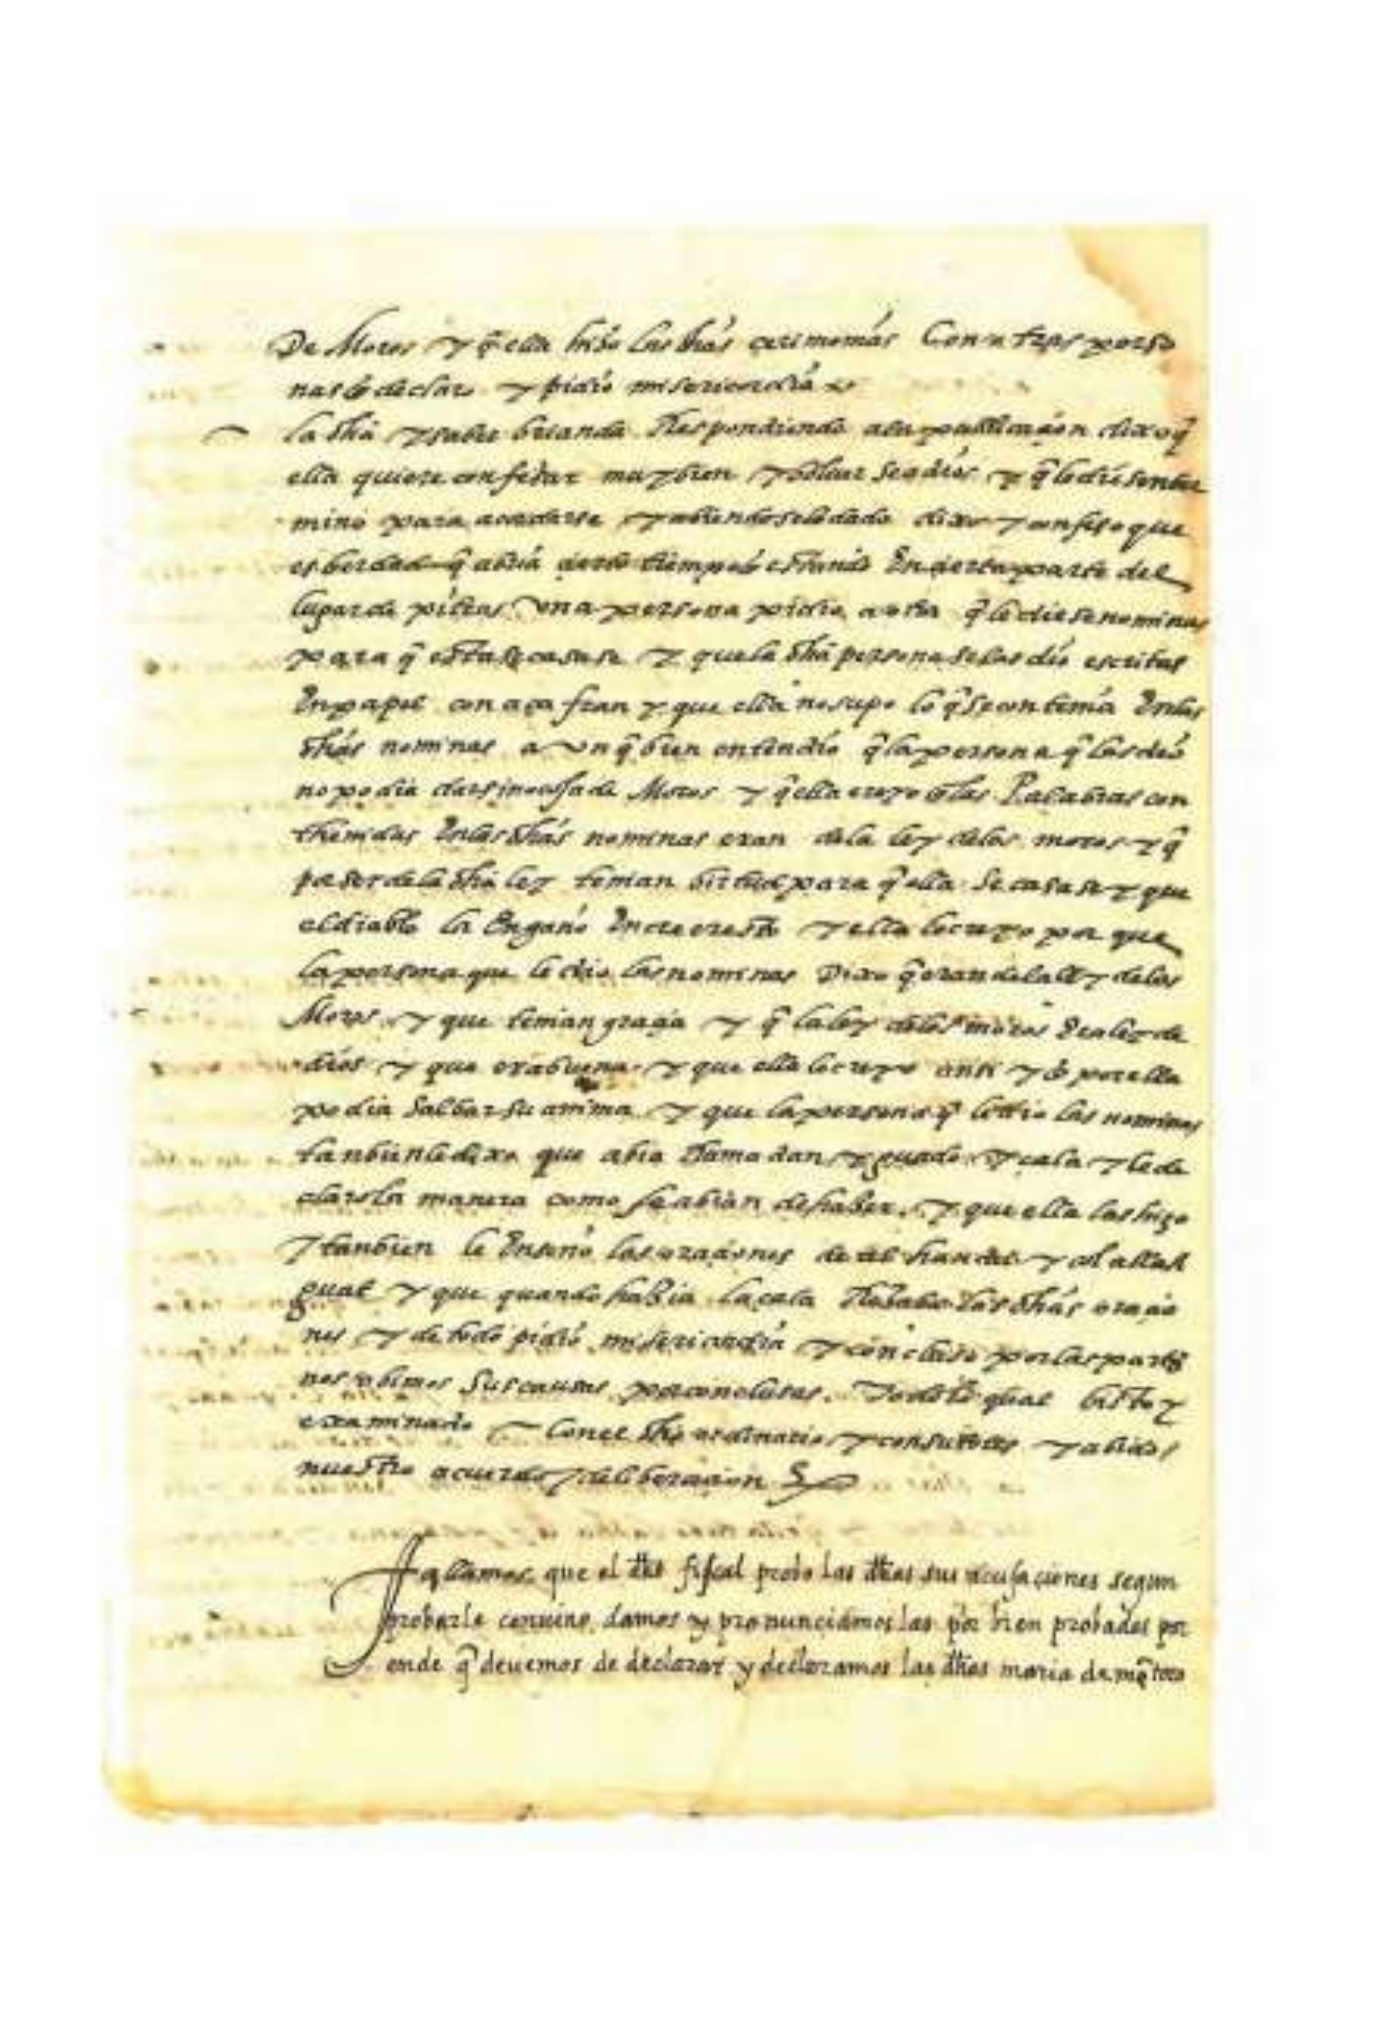 De Moros y q̃ ella hizo las dhãs cerimonias Con otras perso
nas q̃ declaro y pidio misericordia
la dhã ysabel brianda Respondiendo ala publicaçion dixo q̃
ella quiere confesar muy bien y bolver se a dios y q̃ le diesen ter
mino para acordarse y abiendoselo dado dixo y confeso que
es berdad q̃ abra çierto tiempo q̃ estando En çierta parte del
lugar de una persona pidio a otra q̃ le diese nominas
para q̃ esta se casase y que la dhã persona se las dio escritas
En papel con açafran y que ella no supo lo q̃ se contenia En las
dhãs nominas a un q̃ bien entendio q̃ la persona q̃ las dio
no podia dar sino cosa de Moros y q̃ ella creyo q̃ las Palabras con
thenidas En las dhãs nominas eran de la ley de los moros y q̃
por ser de la dhã ley tenian birtud para q̃ ella se casase y que
el diablo la Engaño En creer esto y ella lo creyo por que
la persona que le dio las nominas Dixo q̃ eran de la ley de los
Moros y que tenian graçia y q̃ la ley de los moros Era ley de
dios y que era buena y que ella lo creyo ansi y q̃ por ella
podia Salbar su anima y que la persona q̃ le dio las nominas
tanbien le dixo que abia Ramadan y guado y çala y le de
claro la manera como se abian de haber y que ella las hizo
y tanbien le Enseño las oraçiones de al handu y colalla
guat y que quando hazia la çala Rezaba las dhãs oraçio
nes y de todo pidio misericordia y concluso por las partes
nos obimos Sus causas por conclusas. Todo lo qual bisto y
examinado Con el dhõ ordinario y consultores y abido
nuestro acuerdo y deliberaçion
Fallamos que el dho fiscal probo las dhas sus acusaciones segun
probarle convino, damos y pronunciamos las por bien probadas por
ende q̃ devemos de declarar y declaramos las dhas maria de